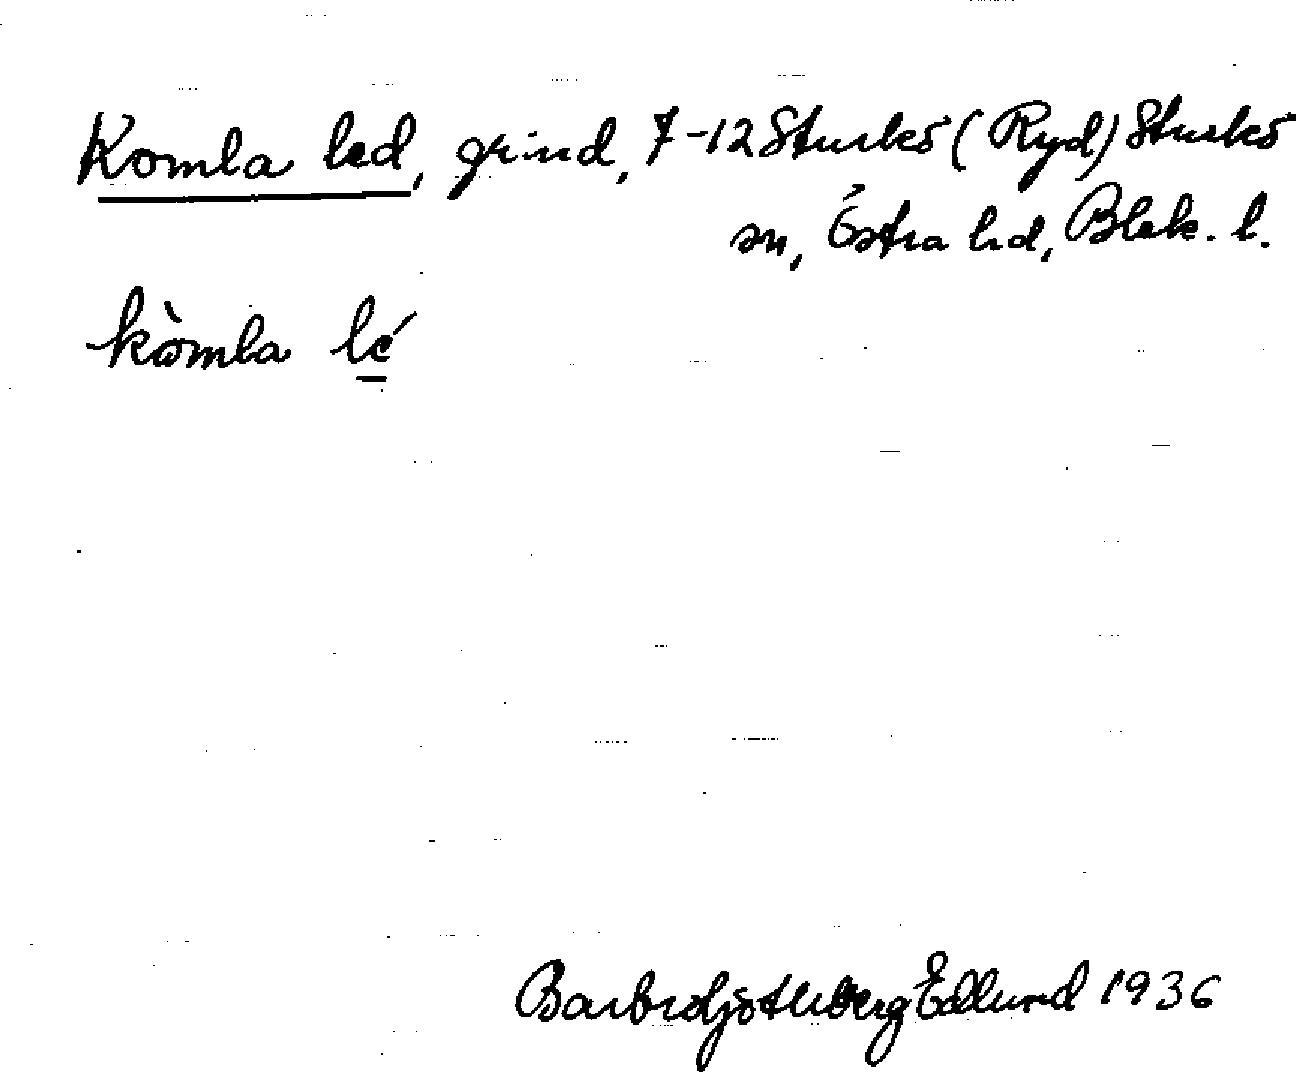 Komla led, grind, 7-12 Sturkö (Ryd) Sturkö
sn, Östra hd, Blek. l.
kòmla lé
Barbro Götlberg Edlund 1936